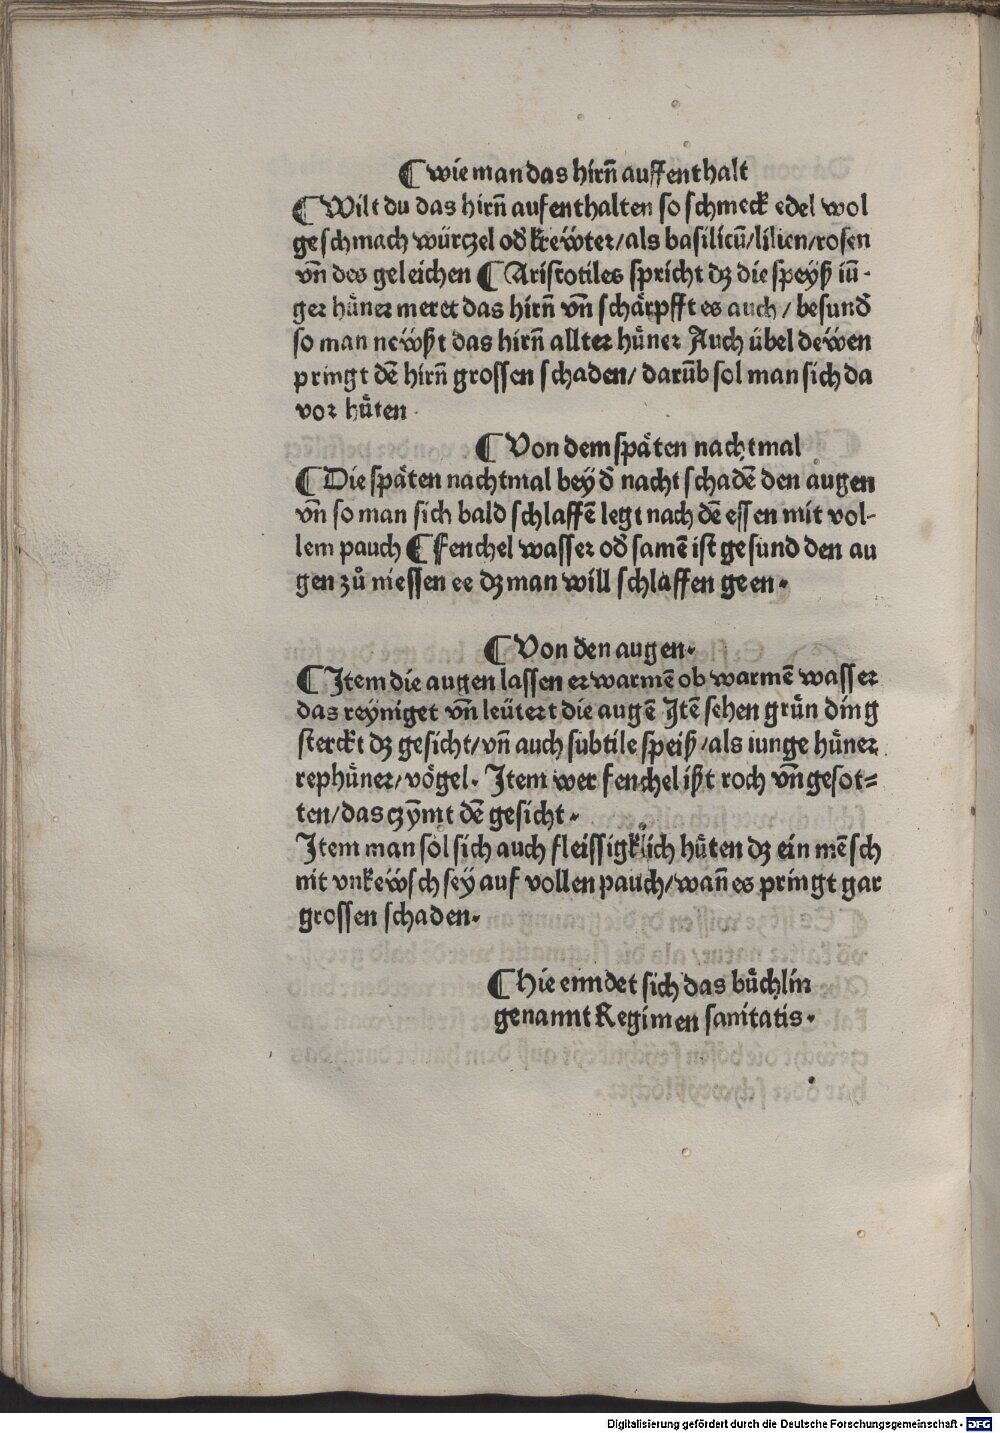 ¶ wie man das hirn̄ auffenthalt
¶ Wilt du das hirn̄ aufenthalten so schmeck edel wol
geschmach würczel od̓ krewͤter/als basilicū/lilien/rosen
vn̄ des geleichen ¶ Aristotiles spricht dz die speyß iū-
ger huͤner meret das hirn̄ vn̄ schaͤrpfft es auch/ besund̓
so man newßt das hirn̄ allter huͤner Auch übel dewͤen
pringt dē hirn̄ grossen schaden/ darūb sol man sich da
vor huͤten
¶ Von dem spaͤten nachtmal
¶ Die spaͤten nachtmal bey d̓ nacht schadē den augen
vn̄ so man sich bald schlaffē legt nach dē essen mit vol-
lem pauch ¶ fenchel wasser od̓ samē ist gesund den au
gen zů niessen ee dz man will schlaffen geen.
¶ Von den augen.
¶ Item die augen lassen erwarmē ob warmē wasser
das reyniget vn̄ leütert die augē Itē sehen gruͤn ding
sterckt dz gesicht/vn̄ auch subtile speiß/als iunge huͤner
rephuͤner/voͤgel. Item wer fenchel ißt roch vn̄ gesot=
ten/das czymt dē gesicht.
Item man sol sich auch fleissigklich huͤten dz ein mēsch
nit vnkewͤsch sey auf vollen pauch/wan̄ es pringt gar
grossen schaden.
¶ Hie enndet sich das buͤchlin
genannt Regimen sanitatis.
Digitalisierung gefördert durch die Deutsche Forschungsgemeinschaft - DFG